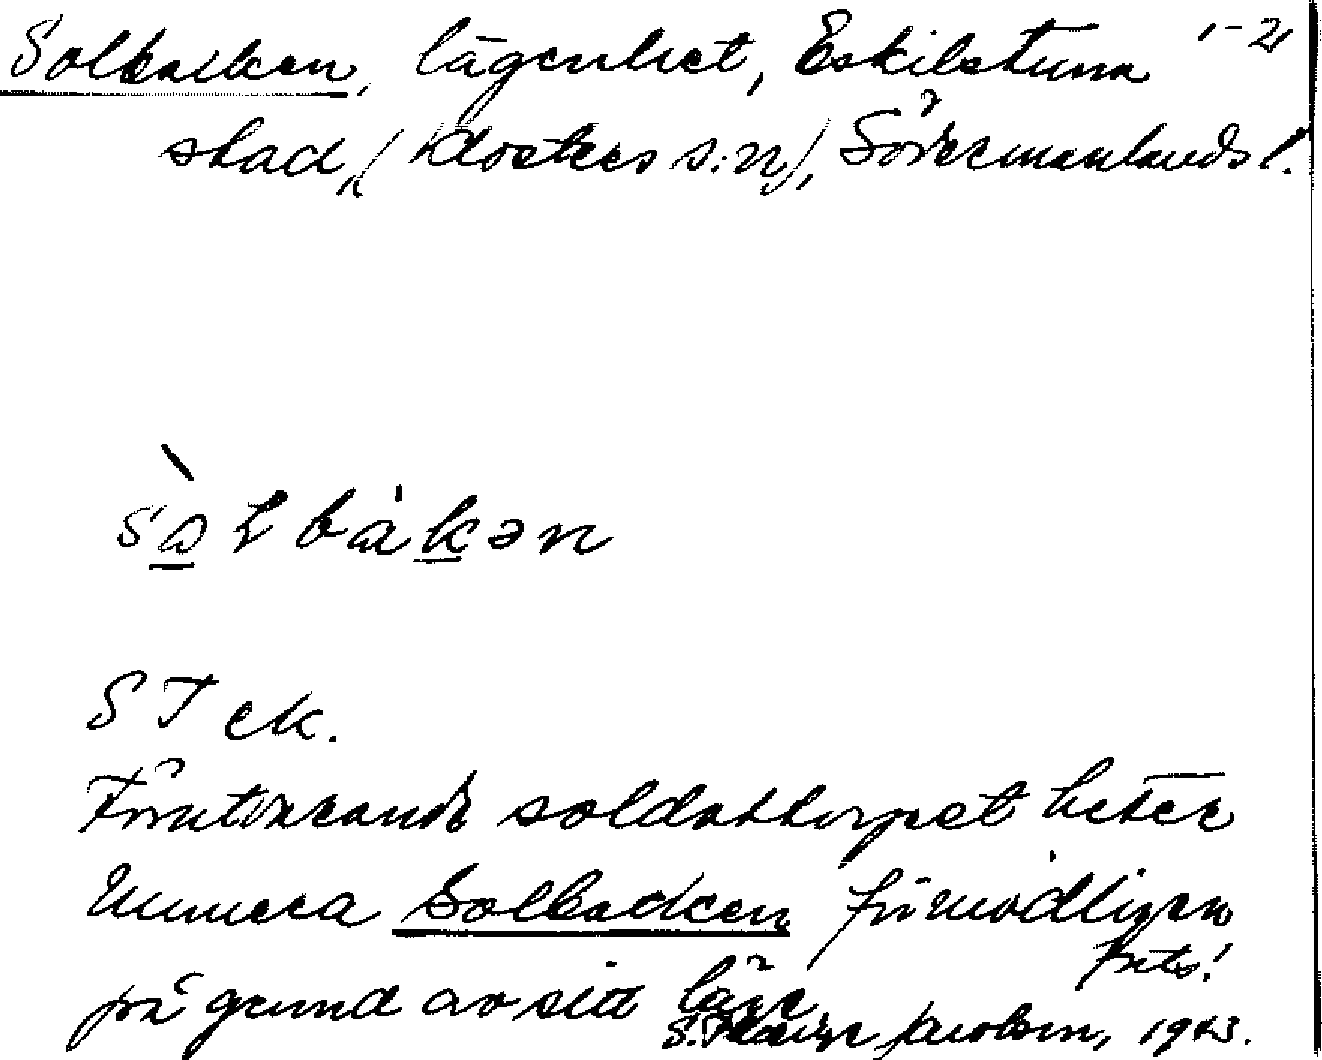 Solbacken, lägenhet, Eskilstuna 1-2
stad, (Klosters s:n), Södermanlands l.
sòlbàkən
S T ek.
Förutvarande soldattorpet heter
numera Solbacken förmodligen
på grund av sitt läge
forts!
Jacobson, 1943.